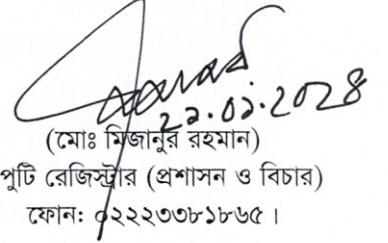 ২২.০১.২০২৪
(মোঃ মিজানুর রহমান)
পুটি রেজিস্ট্রার (প্রশাসন ও বিচার)
ফোন: ০২২২৩৩৮১৮৬৫ ।